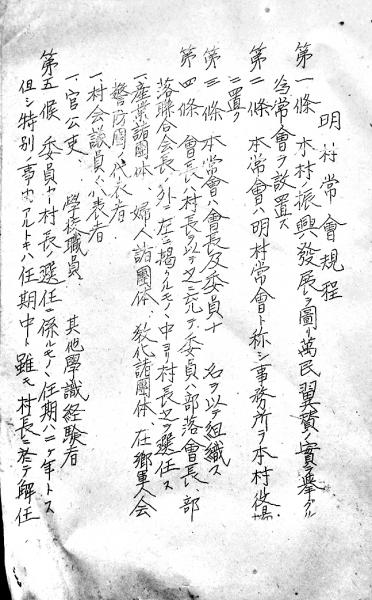 明村常會規程
第一條 本村ノ振興發展ヲ圖リ萬民翼賛ノ實ヲ擧グル
為常會ヲ設置ス
第二條 本常會ハ明村常會ト称シ事務所ヲ本村役場
ニ置ク
第三條 本常會ハ會長及委員十 名ヲ以テ組織ス
第四條 會長ハ村長ヲ以テ之ニ充テ委員ハ部落會長、部
落聯合会長ノ外左ニ掲クルモノノ中ヨリ村長之ヲ選任ス
一、産業諸團体、婦人諸團体、教化諸團体、在郷軍人会
警防團ノ代表者
一、村会議員ノ代表者
一、官公吏 學校職員 其他學識経験者
第五條 委員中村長ノ選任ニ係ルモノノ任期ハ二ヶ年トス
但シ特別ノ事由アルトキハ任期中ト雖モ村長ニ於テ解任